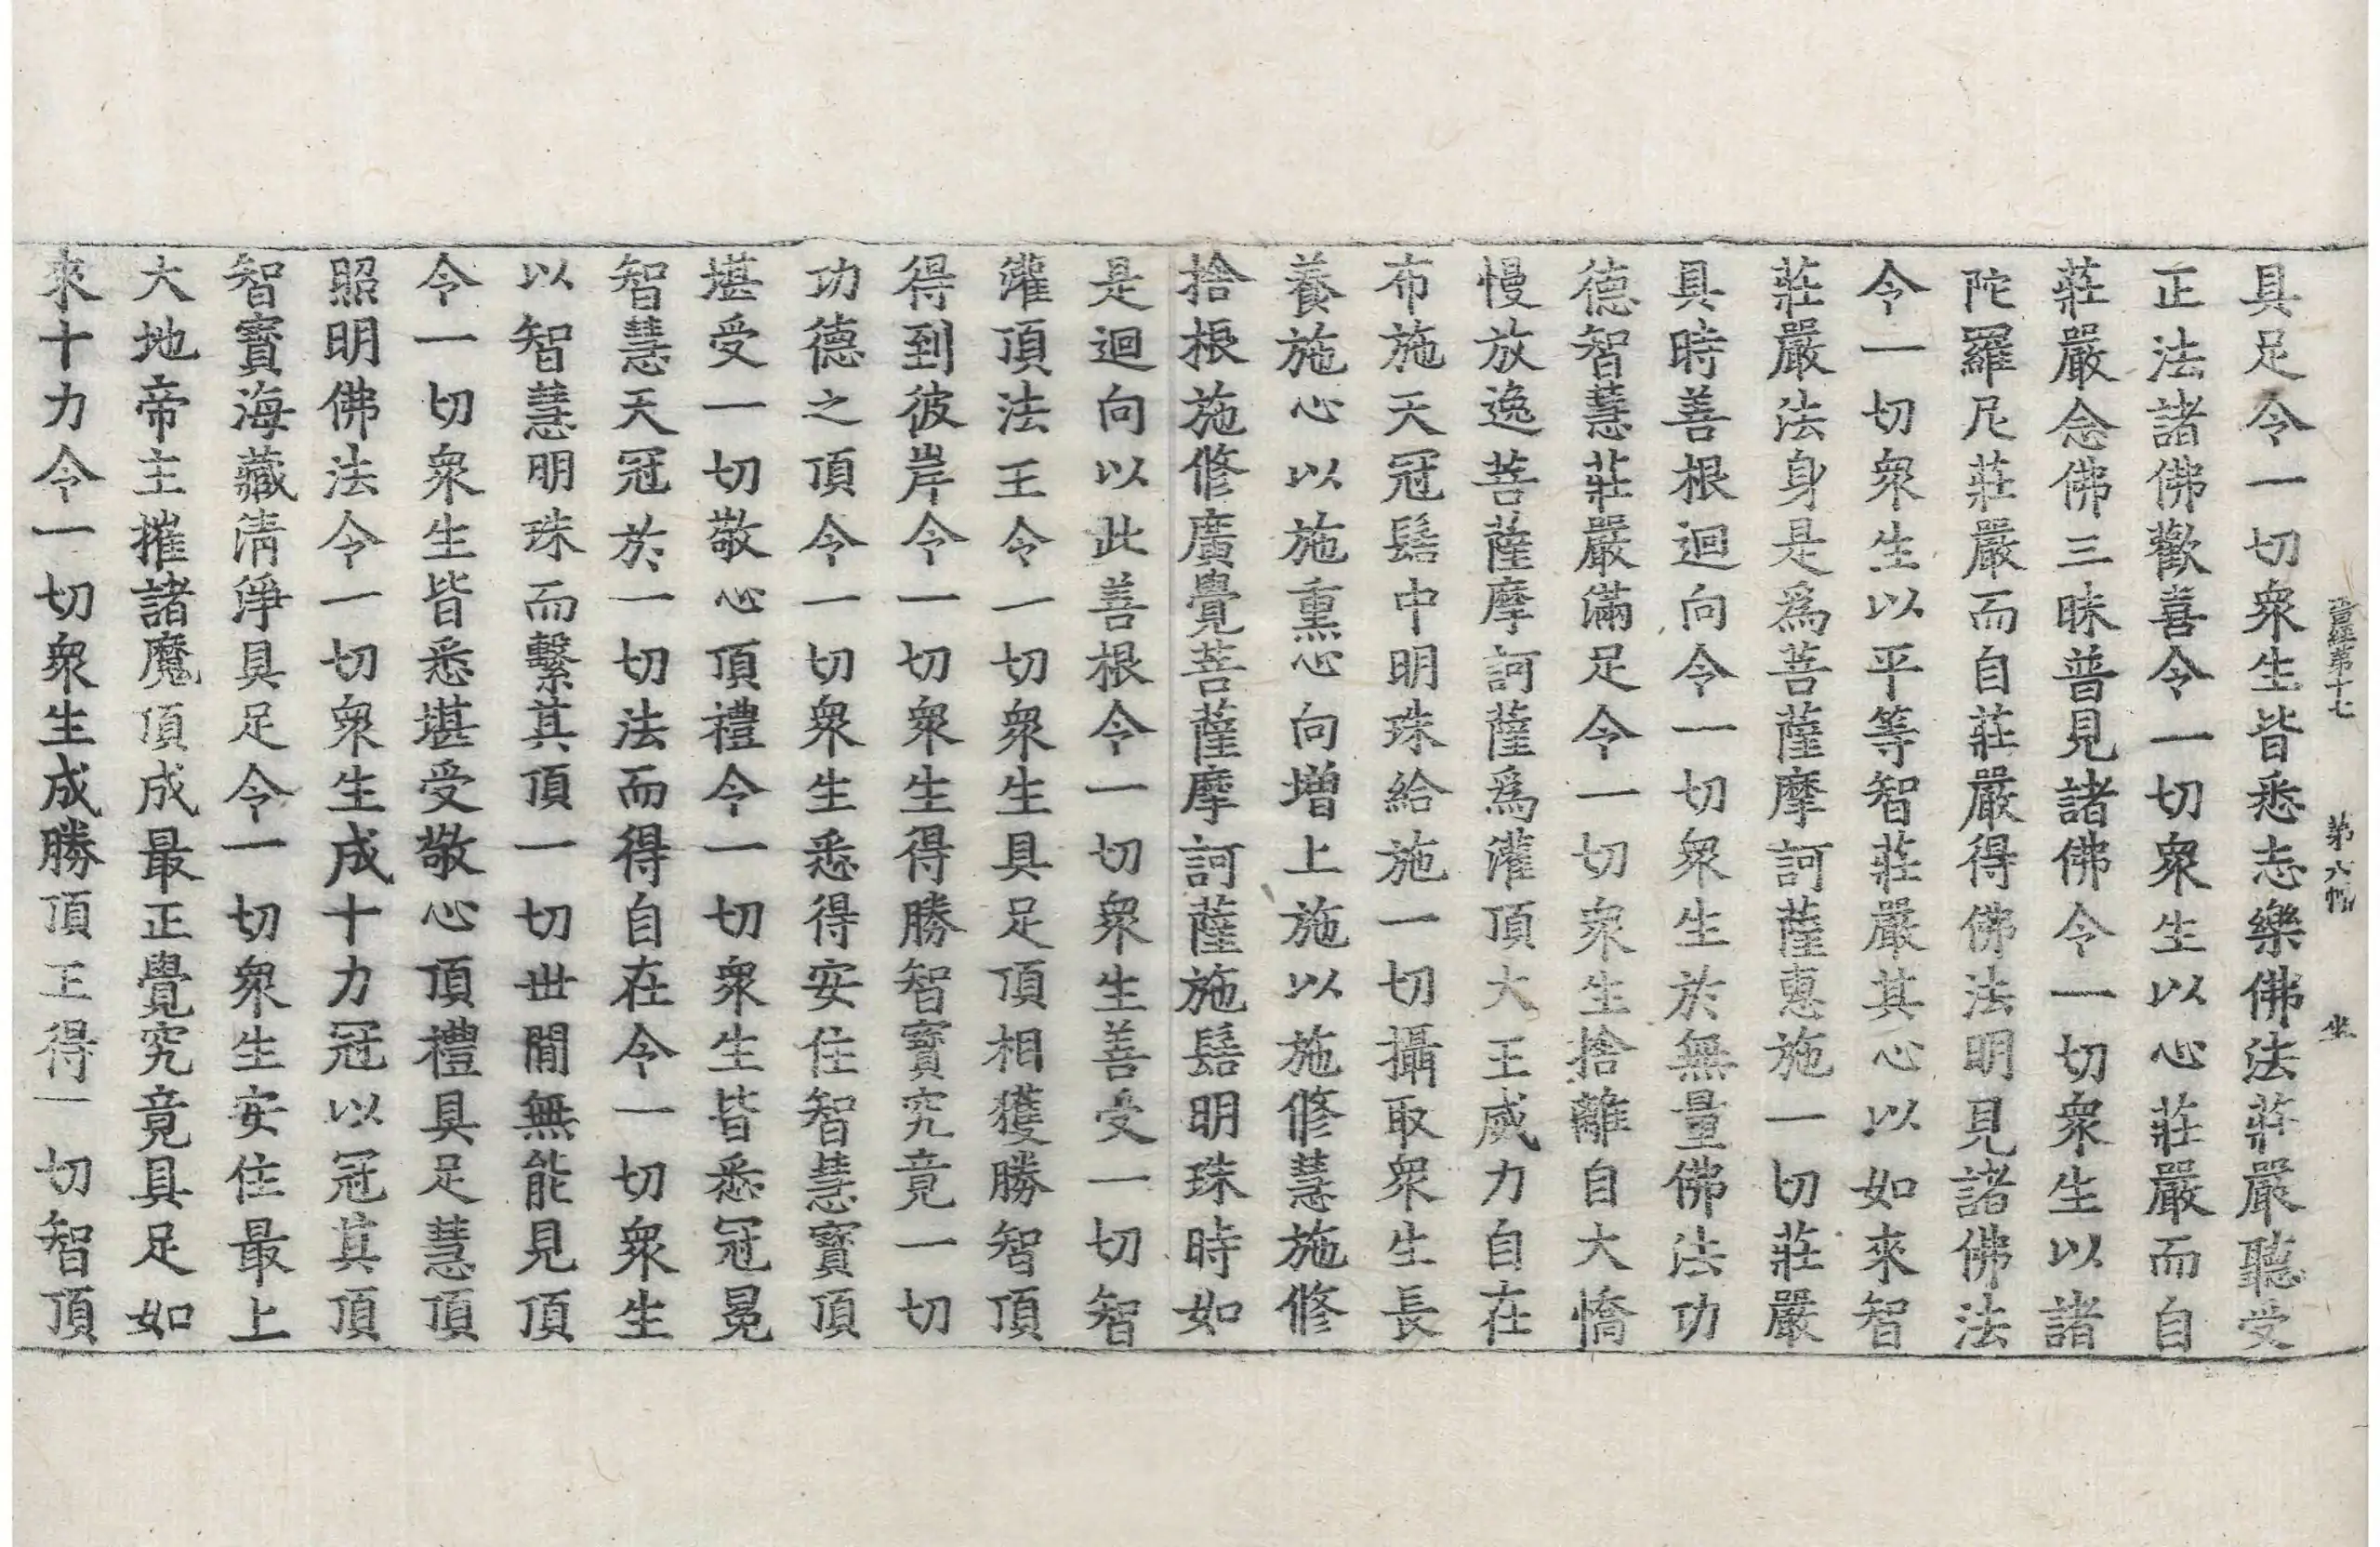 晉經第十七 第六幅 坐
具足令一切衆生皆悉志樂佛法莊嚴聽受
正法諸佛歡喜令一切衆生以心莊嚴而自
莊嚴念佛三昧普見諸佛令一切衆生以諸
陀羅尼莊嚴而自莊嚴得佛法明見諸佛法
令一切衆生以平等智莊嚴其心以如來智
莊嚴法身是爲菩薩摩訶薩惠施一切莊嚴
具時善根迴向令一切衆生於無量佛法功
德智慧莊嚴滿足令一切衆生捨離自大憍
慢放逸菩薩摩訶薩爲灌頂大王威力自在
布施天冠髻中明珠給施一切攝取衆生長
養施心以施熏心向增上施以施修慧施修
捨根施修廣覺菩薩摩訶薩施髻明珠時如
是迴向以此善根令一切衆生善受一切智
灌頂法王令一切衆生具足頂相獲勝智頂
得到彼岸令一切衆生得勝智寶究竟一切
功德之頂令一切衆生悉得安住智慧寶頂
堪受一切敬心頂禮令一切衆生皆悉冠冕
智慧天冠於一切法而得自在令一切衆生
以智慧明珠而繫其頂一切世閒無能見頂
令一切衆生皆悉堪受敬心頂禮具足慧頂
照明佛法令一切衆生成十力冠以冠其頂
智寶海藏淸淨具足令一切衆生安住最上
大地帝主摧諸魔頂成最正覺究竟具足如
來十力令一切衆生成勝頂王得一切智頂